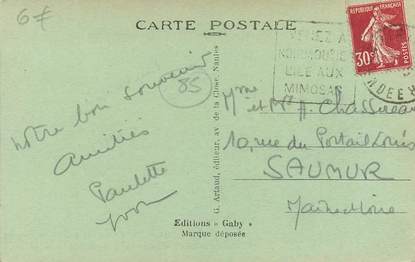 6F
CARTE POSTALE
REPUBLIQUE FRANÇAISE
30c
VENEZ A
NOIRMOUTIER
L'ILE AUX
MIMOSAS
85
notre bon souvenir
Amitiés
Paulette
Yvon
G. Artaud, éditeur, av. de la Close, Nantes
Mme et Mr A. Chassereau
10, rue du Portail Louis
SAUMUR
Maine et Loire
Editions « Gaby »
Marque déposée